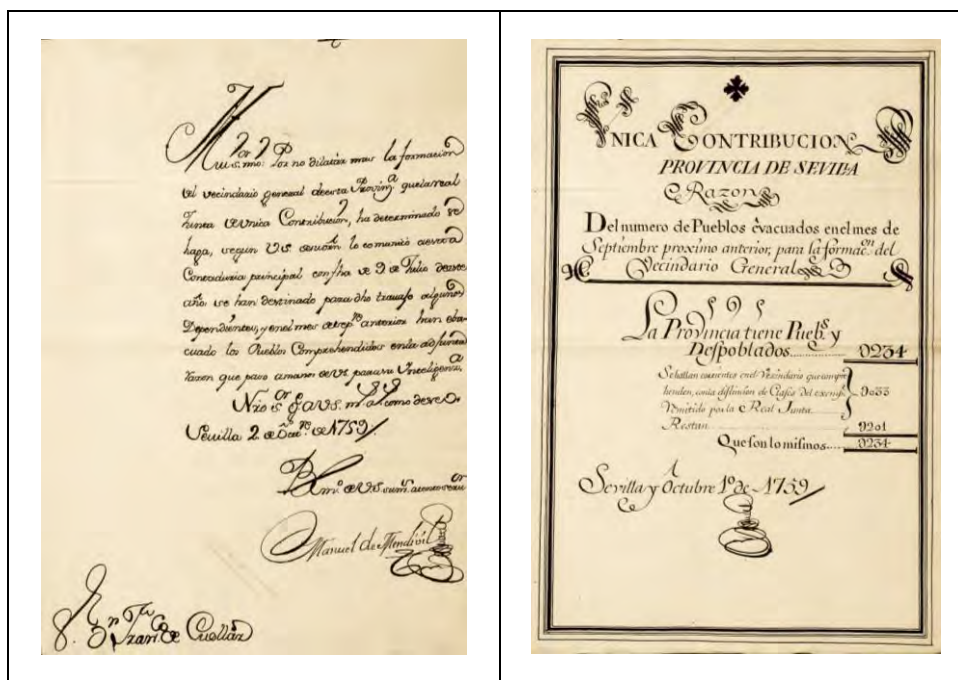 Mui s.mo: Por no dilatar mas la formacion
del vecindario general de esta Provin.a que la real
Junta de Unica Contribucion, ha determinado se
haga, segun VS. lo comunicó a esta
Contaduria principal con fha de 9 de Julio de este
año se han destinado para dho travajo algunos
Dependientes, y en el mes de sep.re anterior han eba-
cuado los Pueblos Comprehendidos en la adjunta
razon que paso a manos de VS para su Inteligenz.a
Nro S.or G.e a VS. m.s a.s como deseo.
Sevilla 2 de de 1759
B l m.o de VS. su m.s atento
Manuel de Mendivil
S.or D.n Fran.co de Cuellar
VNICA CONTRIBUCION
PROVINCIA DE SEVILLA
Razon
Del numero de Pueblos evacuados en el mes de
Septiembre proximo anterior, para la formac.on del
Vecindario General
La Provincia tiene Pueb.s y
Despoblados 0234
Se hallan existentes en el Vezindario que compre
henden, con la distincion de Clases del exemp.r
remitido por la Real Junta 0033
Restan 0201
Que son lo mismos 0234
Sevilla y Octubre 1º de 1759